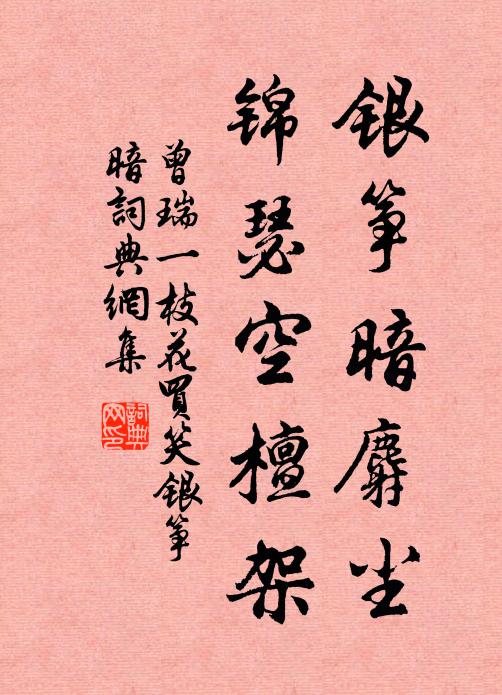 银筝暗麝尘
锦瑟空檀架
曾瑞一枝花買笑银筝
暗詞典網集
詞典
网印